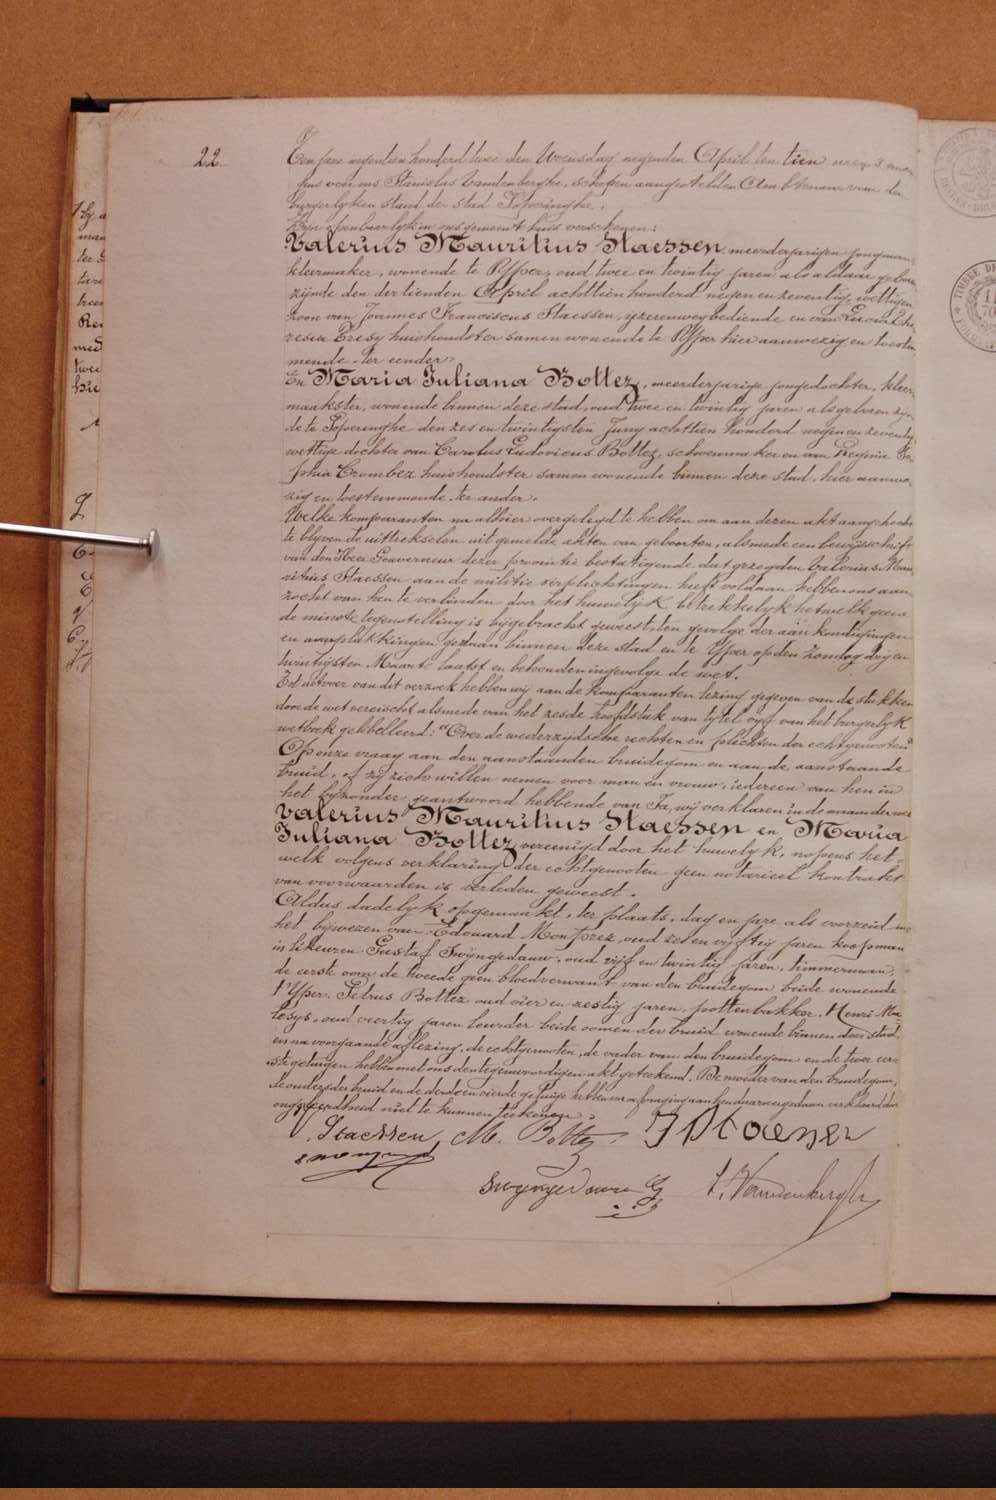 22
Ten jare negentien honderd twee den Woensdag negenden April ten tien ure
voor ons Stanislas Vandenberghe, schepen aangestelden Ambtenaar van den
burgerlyken stand der stad Poperinghe,
Zyn openbaarlyk in ons gemeentehuis verschenen:
Valerius Mauritius Staessen meerderjarigen jongman
kleermaker, wonende te Ypper, oud twee en twintig jaren als aldaar geboren
zynde den dertienden April achttien honderd negen en zeventig, wettigen
zoon van Joannes Franciscus Staessen, yzerenwegbediende en van
huishoudster samen wonende te Ypper hier aanwezig en toestem
mende ter eender,
En Maria Juliana Bottez, meerderjarige jongedochter, kleer
maakster, wonende binnen deze stad, oud twee en twintig jaren als geboren zyn
de te Poperinghe den zes en twintigsten Juny achttien honderd negen en zeventig
wettige dochter van Carolus Ludovicus Bottez, schoenmaker en van Regina
Crombez huishoudster samen wonende binnen deze stad, hier aanwe
zig en toestemmende ter ander.
Welke komparanten na alhier overgelegd te hebben om aan dezen akt aangehecht
te blyven de uittrekselen uit gemelde akten van geboorten, alsmede een bewysschrift
van den Heer Gouverneur dezer provintie bestatigende dat gezegden Valerius Mau
ritius Staessen aan de militie verplichtingen heeft voldaan hebben ons aan
zocht van hen te verbinden door het huwelyk betrekkelyk hetwelk geene
de minste tegenstelling is bygebracht geweest, ten gevolge der aankondigingen
en aanplakkingen gedaan binnen deze stad en te Ypper op den Zondag dry en
twintigsten Maart laatst en behouden ingevolge de wet.
Tot uitvoer van dit verzoek hebben wy aan de komparanten lezing gegeven van de stukken
door de wet vereischt alsmede van het zesde hoofdstuk van tytel vyf van het burgerlyk
wetboek gelibelleerd: "Over de wederzydsche rechten en plichten der echtgenooten"
Op onze vraag aan den aanstaanden bruidegom en aan de aanstaande
bruid, of zy zich willen nemen voor man en vrouw, iedereen van hen in
het byzonder geantwoord hebbende van Ja, wy verklaren in de naam der wet
Valerius Mauritius Staessen en Maria
Juliana Bottez vereenigd door het huwelyk, nopens het-
welk volgens verklaring der echtgenoten geen notarieel kontrakt
van voorwaarden is verleden geweest.
Aldus dadelyk opgemaakt, ter plaats, dag en jare als voorzeid in
het bywezen van Edouard Monprez, oud zes en vyftig jaren koopman
in likeuren Gustaf Swyngedauw, oud vyf en twintig jaren, timmerman,
de eerste oom de tweede geen bloedverwant van den bruidegom beide wonende
t'Yper. Petrus Bottez oud vier en zestig jaren, pottenbakker, Henri Ma-
lesys, oud veertig jaren leurder beide oomen der bruid wonende binnen deze stad,
en na voorgaande aflezing, de echtgenoten, de vader van den bruidegom en de twee eer-
ste getuigen hebben met ons den tegenwoordigen akt geteekend. De moeder van den bruidegom,
de ouders der bruid en de derde en vierde getuige hebben na afvraging aan hen daarover gedaan verklaard door
ongeleerdheid niet te kunnen teekenen.
Staessen M. Bottez J F Staessen
Swyngedauw G S. Vandenberghe